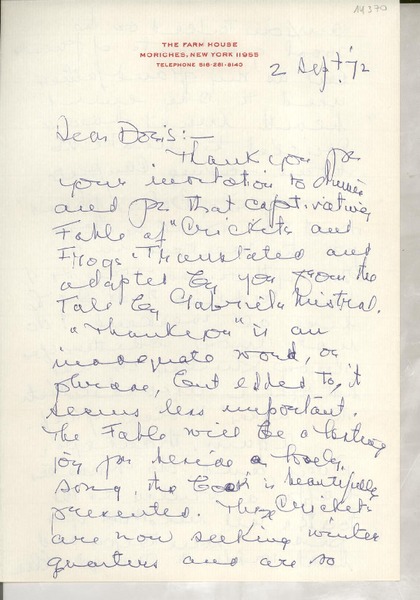 14370
THE FARM HOUSE
MORICHES, NEW YORK 11955
TELEPHONE 516-281-8140
2 Sept. '72
Dear Doris:—
Thank you for
your invitation to dinner
and for that captivating
Fable of "Crickets and
Frogs" Translated and
adapted by you from the
Tale by Gabriela Mistral.
"Thank you" is an
inadequate word, or
phrase, but added to, it
seems less important.
The Fable will be a lasting
joy for beside a lovely
song, the book is beautifully
presented. The Crickets
are now seeking winter
quarters and are so